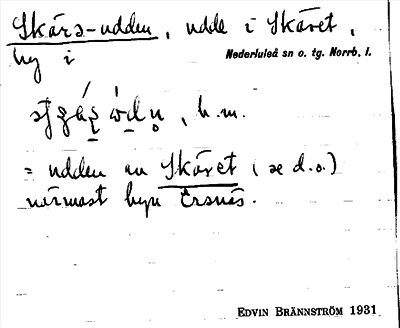 Skärs-udden, udde i Skäret,
by i Nederluleå sn o. tg. Norrb. l.
, b.m.
= udden av Skäret (se d.o.)
närmast byn Örsnäs.
EDVIN BRÄNNSTRÖM 1931